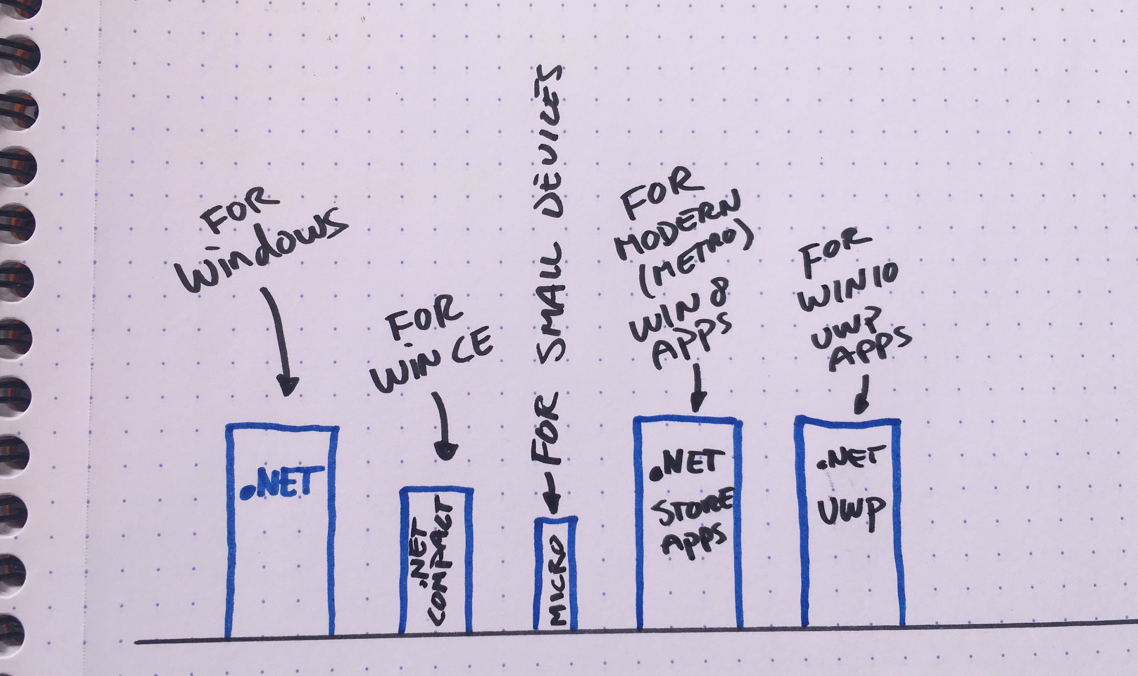 FOR
Windows
.NET
FOR
WIN CE
.NET
COMPACT
FOR SMALL DEVICES
MICRO
FOR
MODERN
(METRO)
WIN 8
APPS
.NET
STORE
APPS
FOR
WIN10
UWP
APPS
.NET
UWP